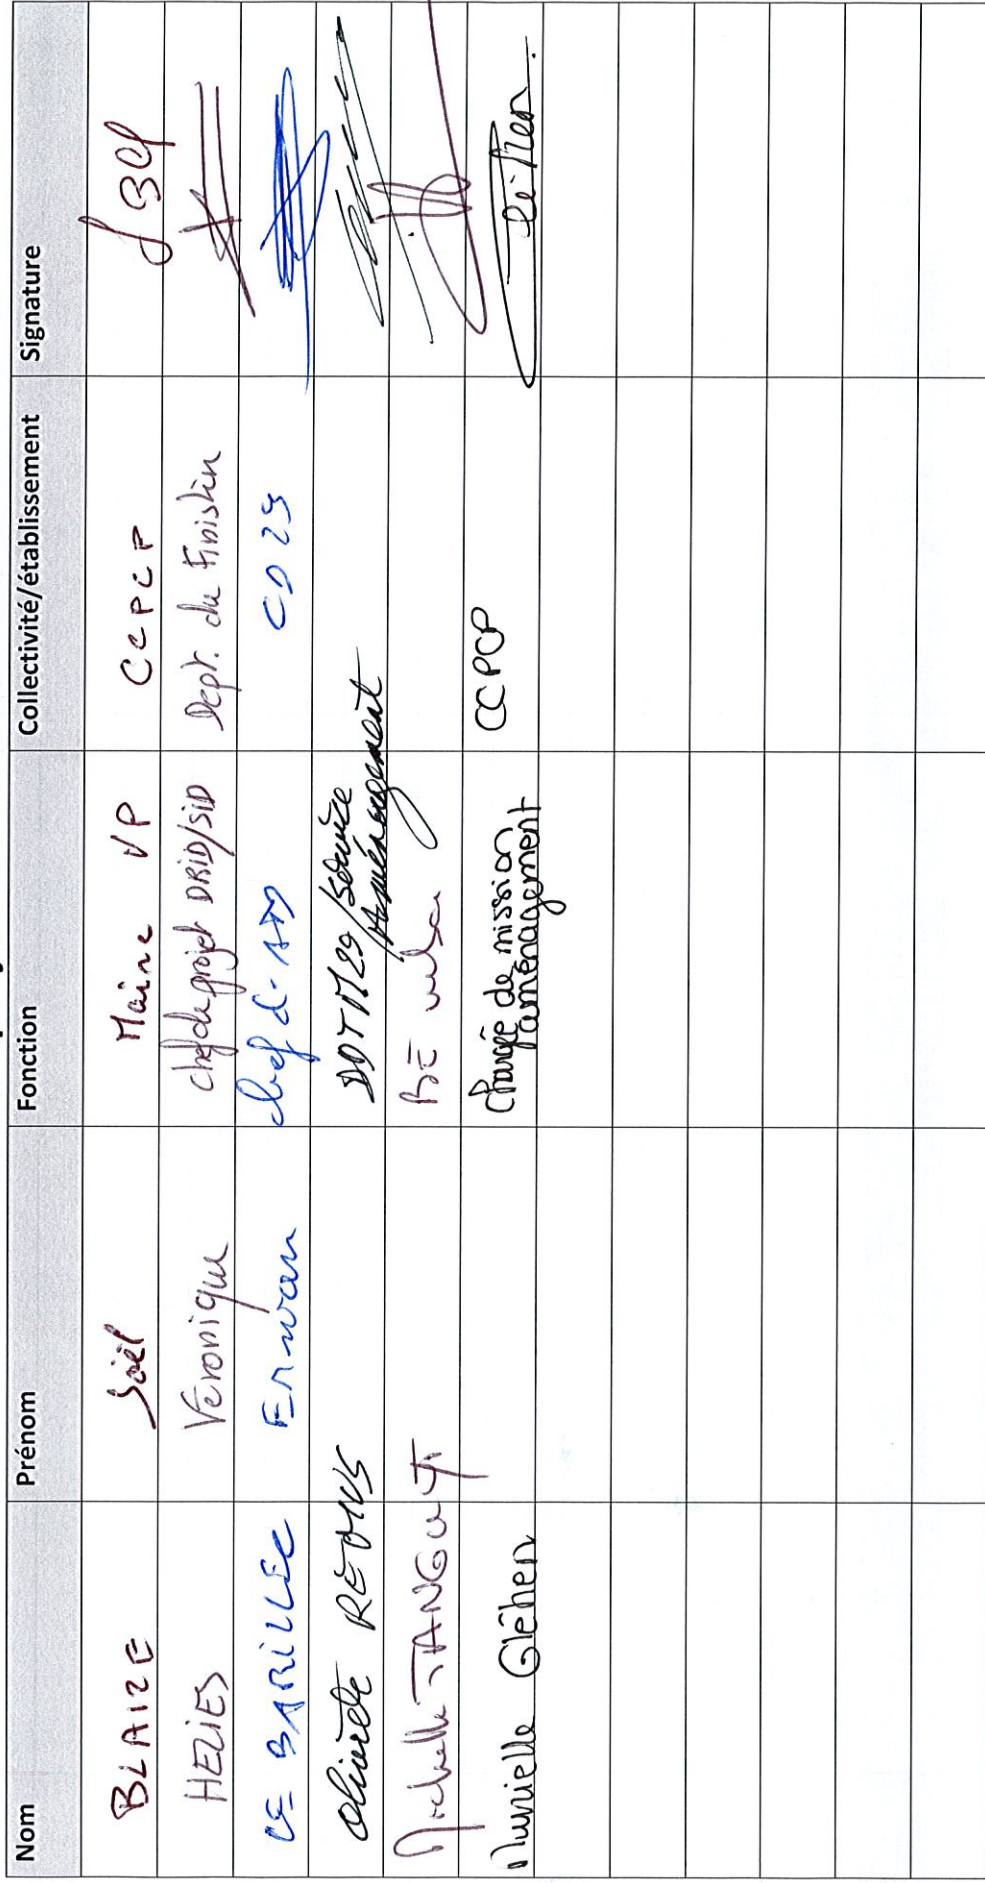 Nom Prénom Fonction Collectivité/établissement Signature
BLAIZE Joël Maire VP CCPCP
HELIES Véronique chef de projet DRID/SID Dept. du Finistère
LE BARILLEC Erwan chef d' ATD CD 29
DDTM29/Service
Olivette REOHUS Aménagement
Michelle TANGUY BE
Murielle Gléhen Chargée de mission CCPCP
aménagement